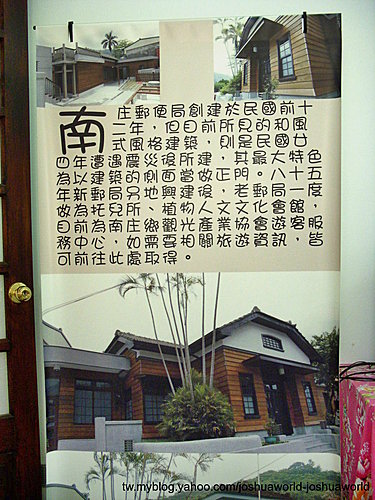 南庄郵便局創建於民國前十
二年，但目前所見的和風
式風格建築，則是民國廿
四年遭遇震災後所建，其最大特色
為以建築的側面當做正門。八十五
年新郵局另地興建後，老郵局一度
做為托兒所、植物人文文化會館，
目前為南庄鄉觀光產業協會遊客服
務中心，如需要相關旅遊資訊，皆
可前往此處取得。
tw.myblog.yahoo.com/joshuaworld-joshuaworld